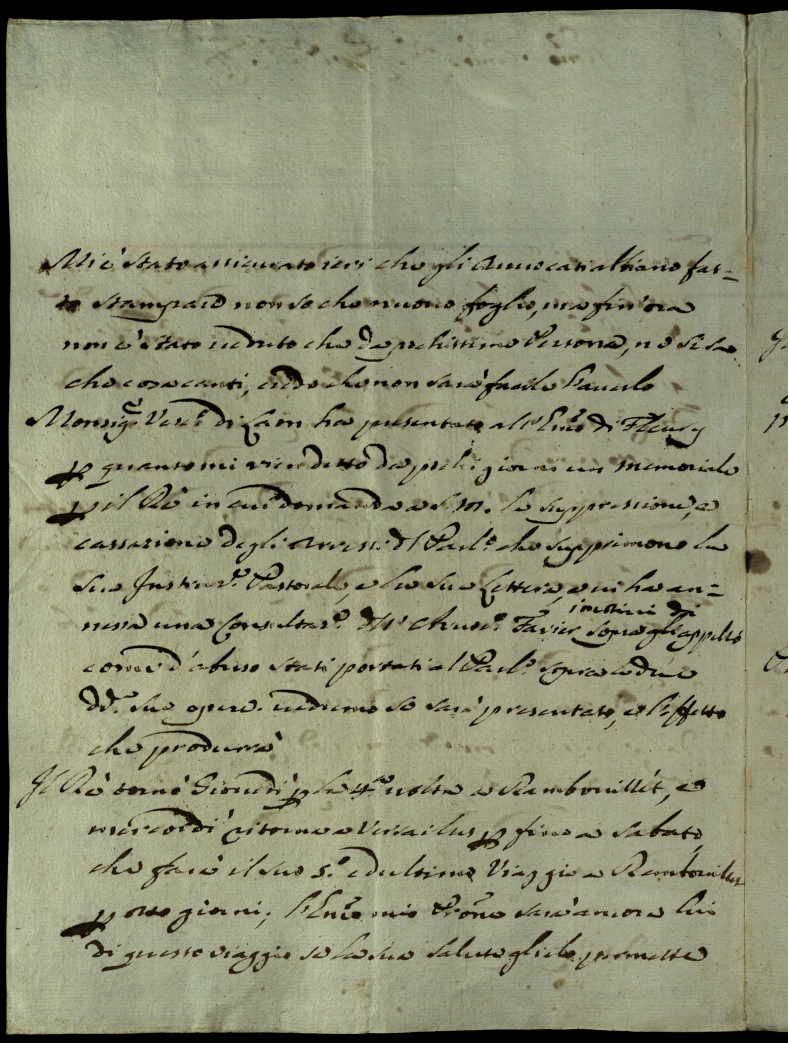 Mi è stato assicurato ieri che gli Avvocati abbiano fat=
to stampare non so che nuovo foglio, ma fin'ora
non è stato veduto che da pochissime Persone, ne si sa
che cosa canti, credo che non sarà facile l'averlo
Monsig.r Vesc.o di Laon ha presentato all'Em.o di Fleury
p quanto mi vien detto da pochi giorni un memoriale
p il Rè in cui domanda a S. M. la suppressione, e
cassazione degli Arresti d'l Parl.o che supprimono la
sua Instruz.e Pastorale, e la sua Lettera, e vi ha an=
nessa una Consultaz.e dell'Avvoc.o Favier sopra gli appelli
i motivi di
come d'abuso stati portati al Parl.o sopra le due
dd.e sue opere. vedremo se sarà presentato, e l'effetto
che produrrà
Il Rè tornò Giovedì p la 4.a volta a Rambouillet, e
mercoledì ritorna a Versailles p fino a Sabato,
che farà il suo 5.o ed ultimo Viaggio a Rambouillet
p otto giorni; l'Em.o mio Pròne sarà ancora lui
di questo viaggio se la sua salute glielo permette